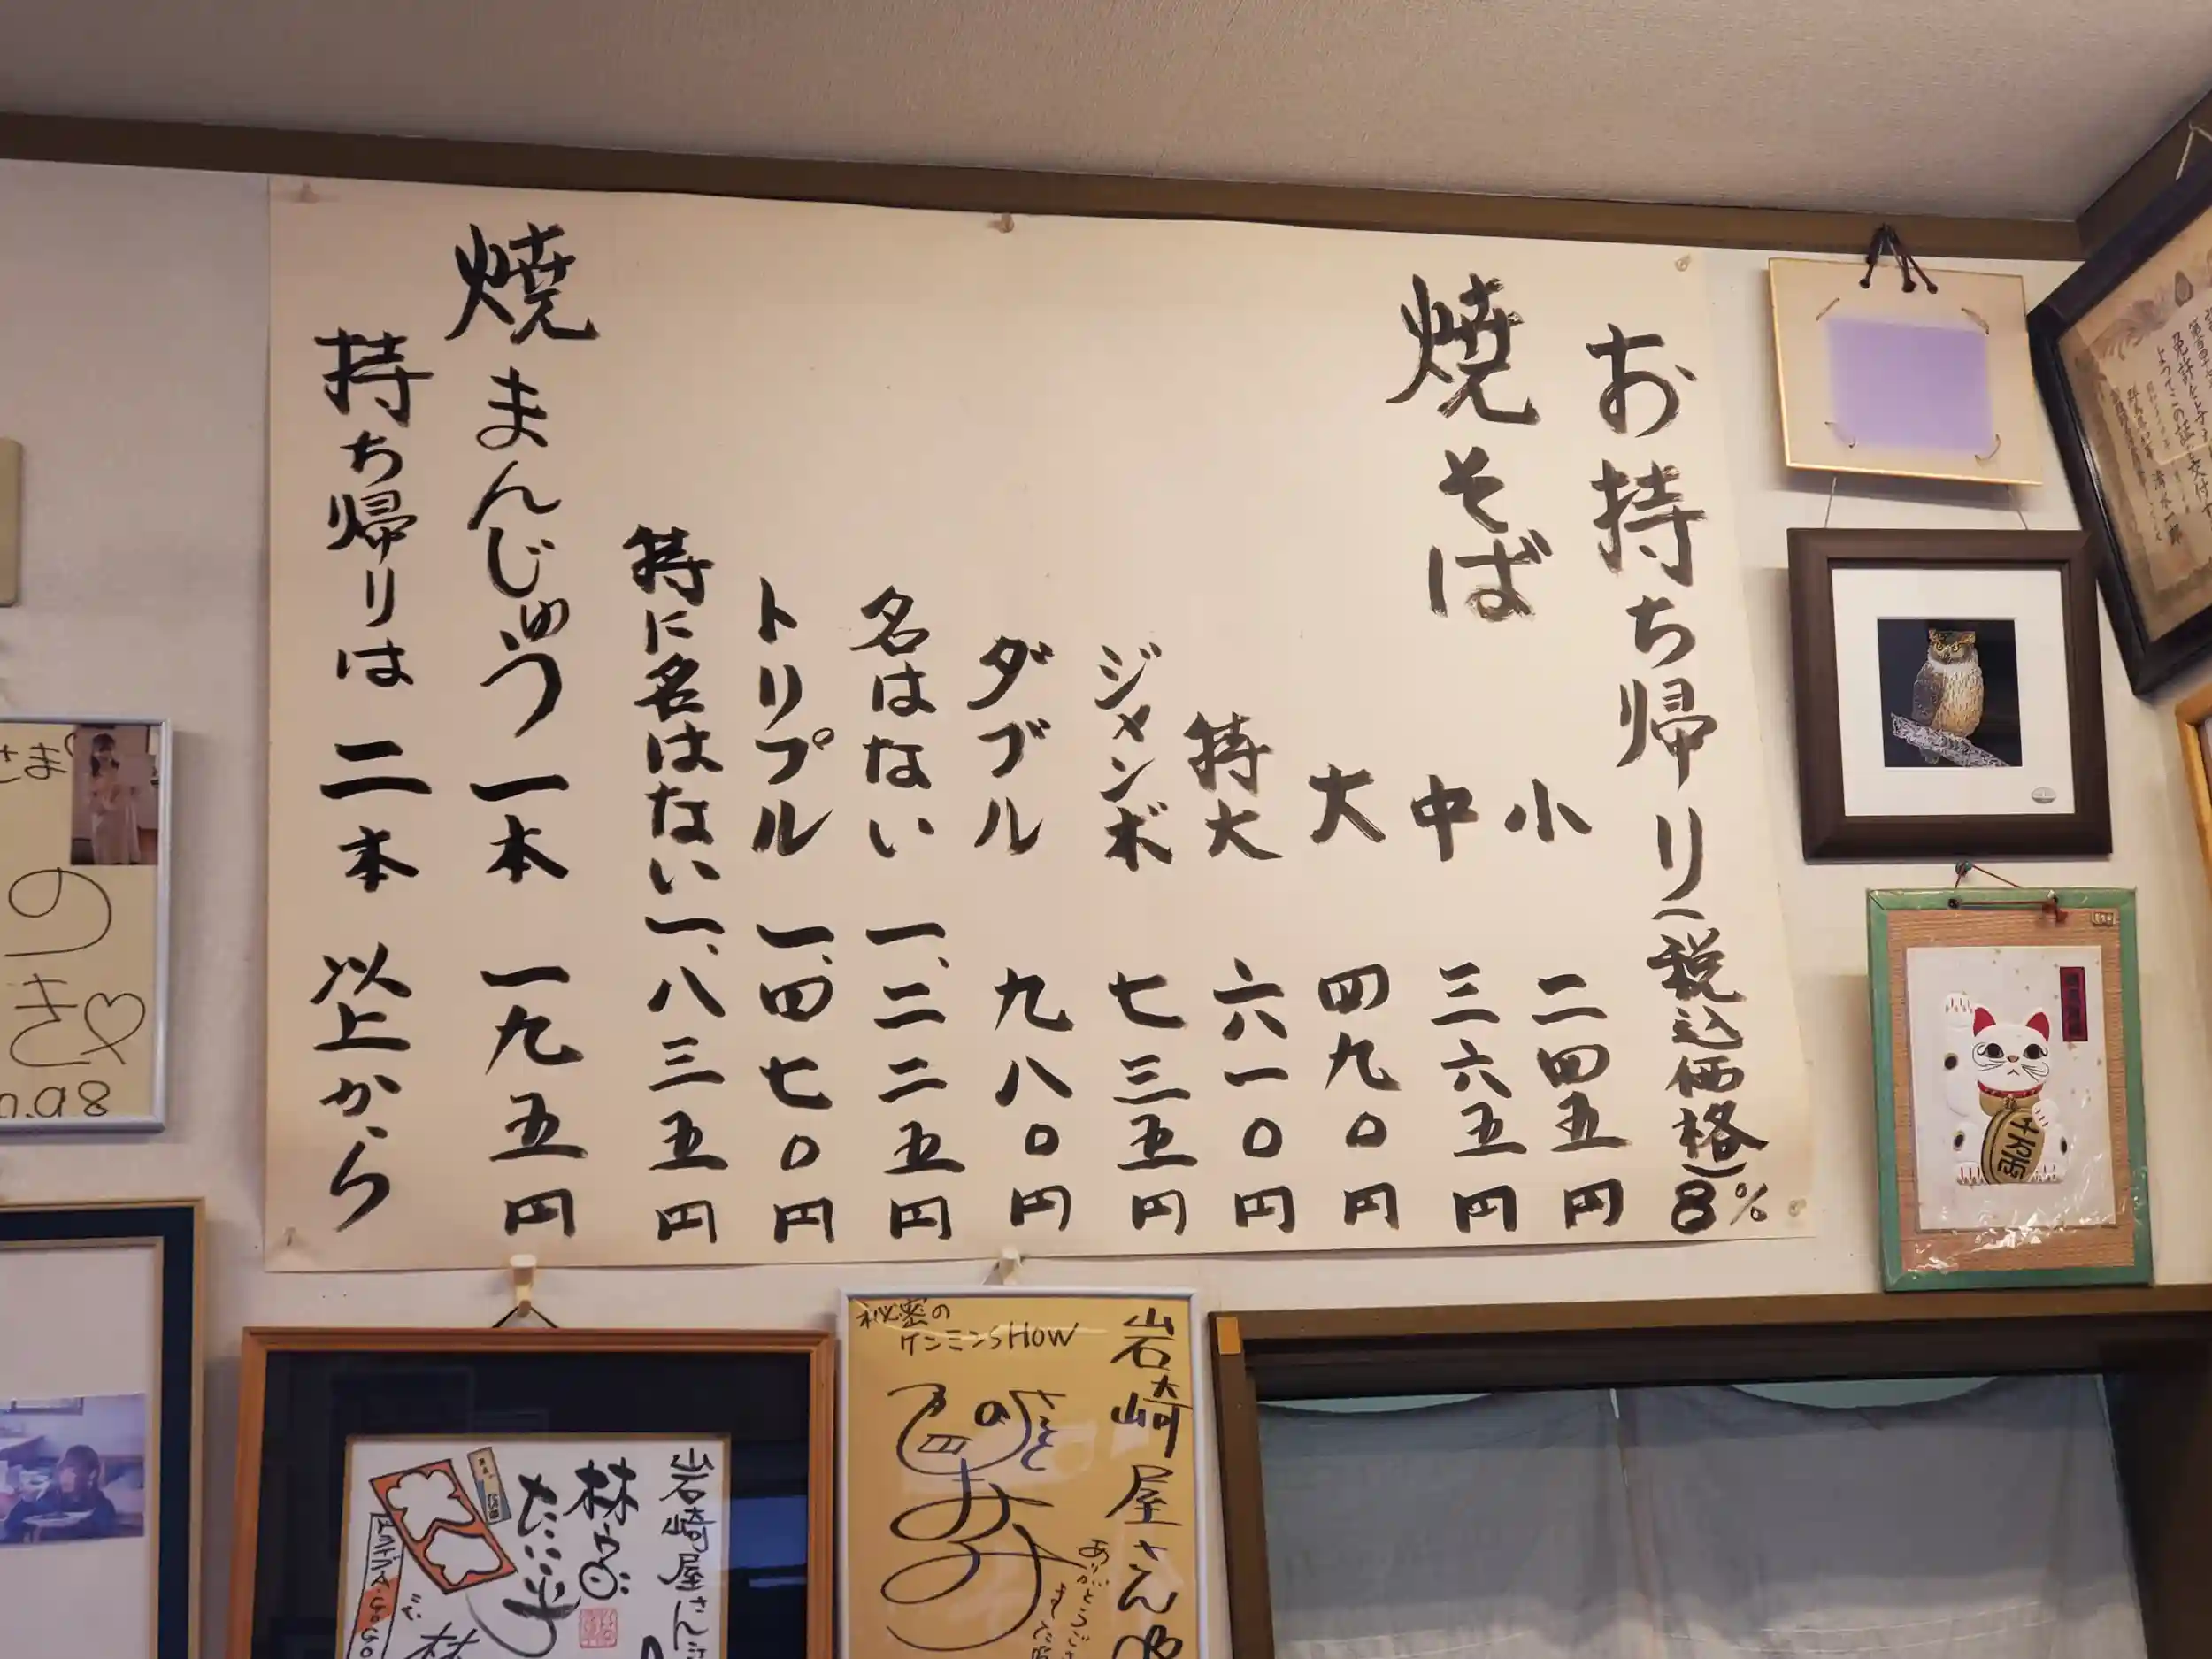 お持ち帰り(税込価格)8%
焼そば
小 二四五円
中 三六五円
大 四九〇円
特大 六一〇円
ジャンボ 七三五円
ダブル 九八〇円
名はない 一、二二五円
トリプル 一、四七〇円
特に名はない 一、八三五円
焼まんじゅう 一本 一九五円
持ち帰りは 二本 以上から
秘密の
ケンミンSHOW
岩崎屋さん江
ありがとうござ
岩崎屋さん江
林家
たい平